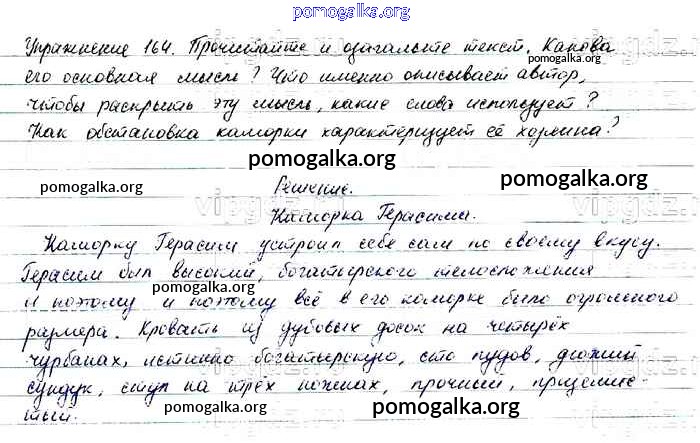 pomogalka.org
Упражнение 164. Прочитайте и озаглавьте текст. Какова
pomogalka.org
его основная мысль? Что именно описывает автор,
чтобы раскрыть эту мысль, какие слова использует?
Как обстановка каморки характеризует её хозяина?
pomogalka.org
pomogalka.org
Решение.
pomogalka.org
Каморка Герасима.
Каморку Герасим устроил себе сам по своему вкусу.
Герасим был высокий, богатырского телосложения
pomogalka.org
и поэтому и поэтому всё в его каморке было огромного
размера. Кровать из дубовых досок на четырёх
pomogalka.org
чурбанах, истинно богатырскую, сто пудов, дюжий
сундук, стул на трёх ножках, прочный, приземис-
тый.
pomogalka.org
pomogalka.org